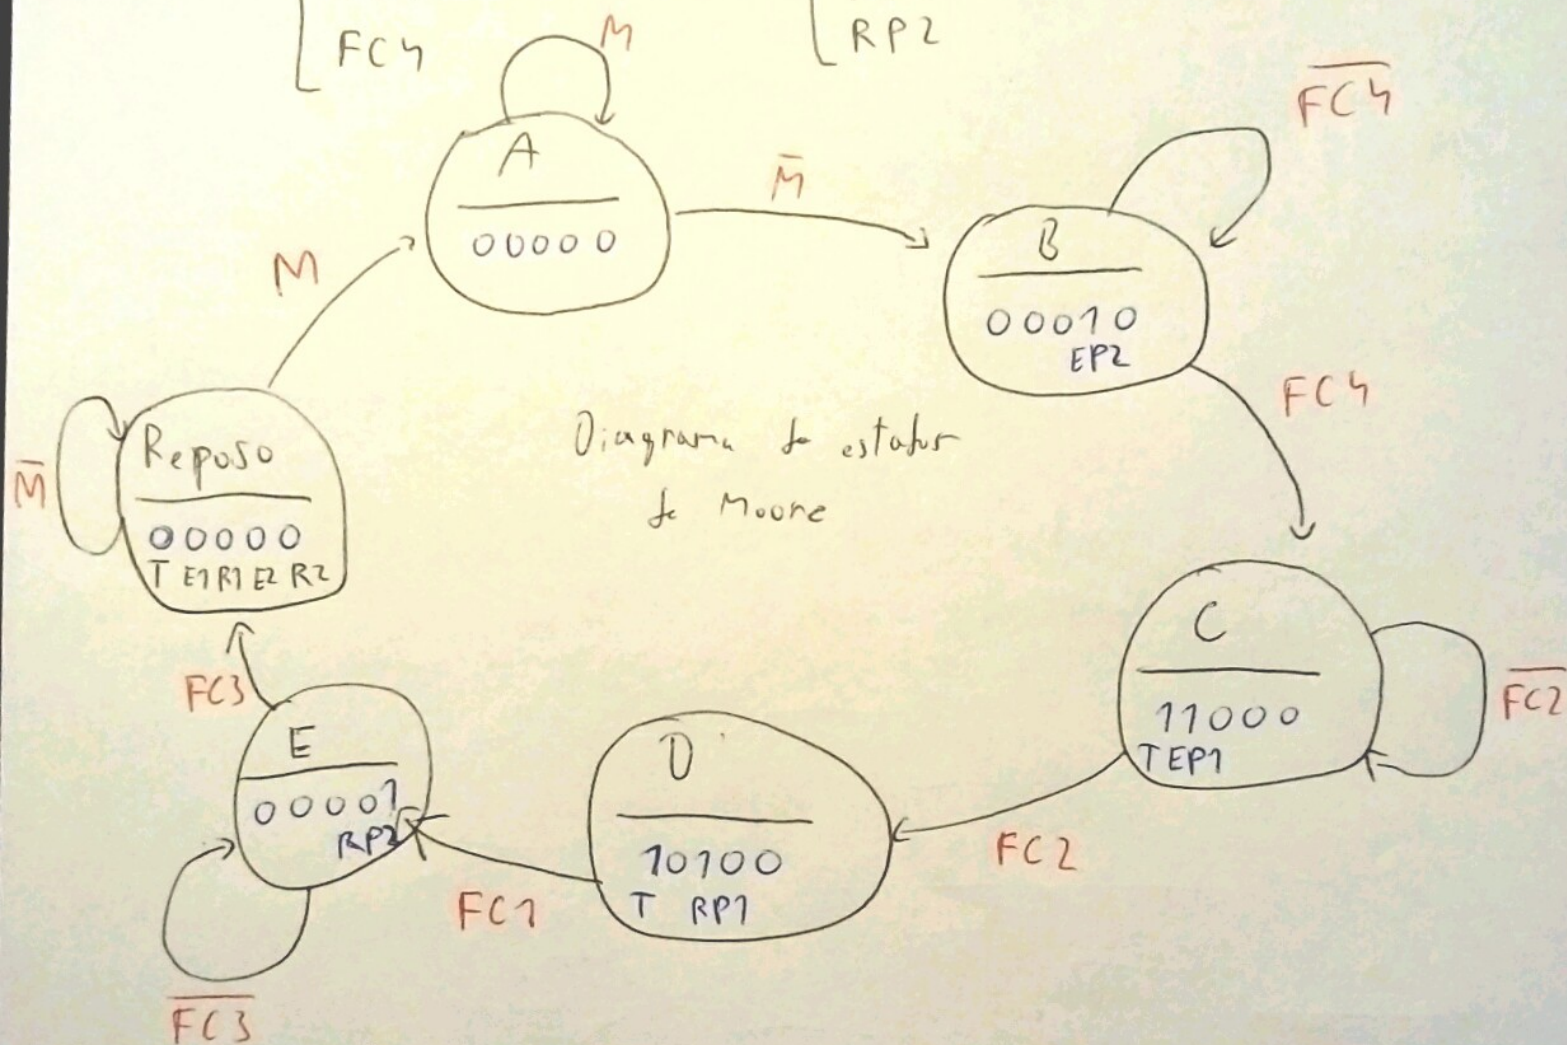 FC4
RP2
M
A
00000
M̅
F̅C̅4̅
B
00010
EP2
M
FC4
Reposo
00000
T E1 R1 E2 R2
M̅
Diagrama de estados
de Moore
C
11000
T EP1
F̅C̅2̅
FC3
E
00001
RP2
D
10100
T RP1
FC2
FC1
F̅C̅3̅